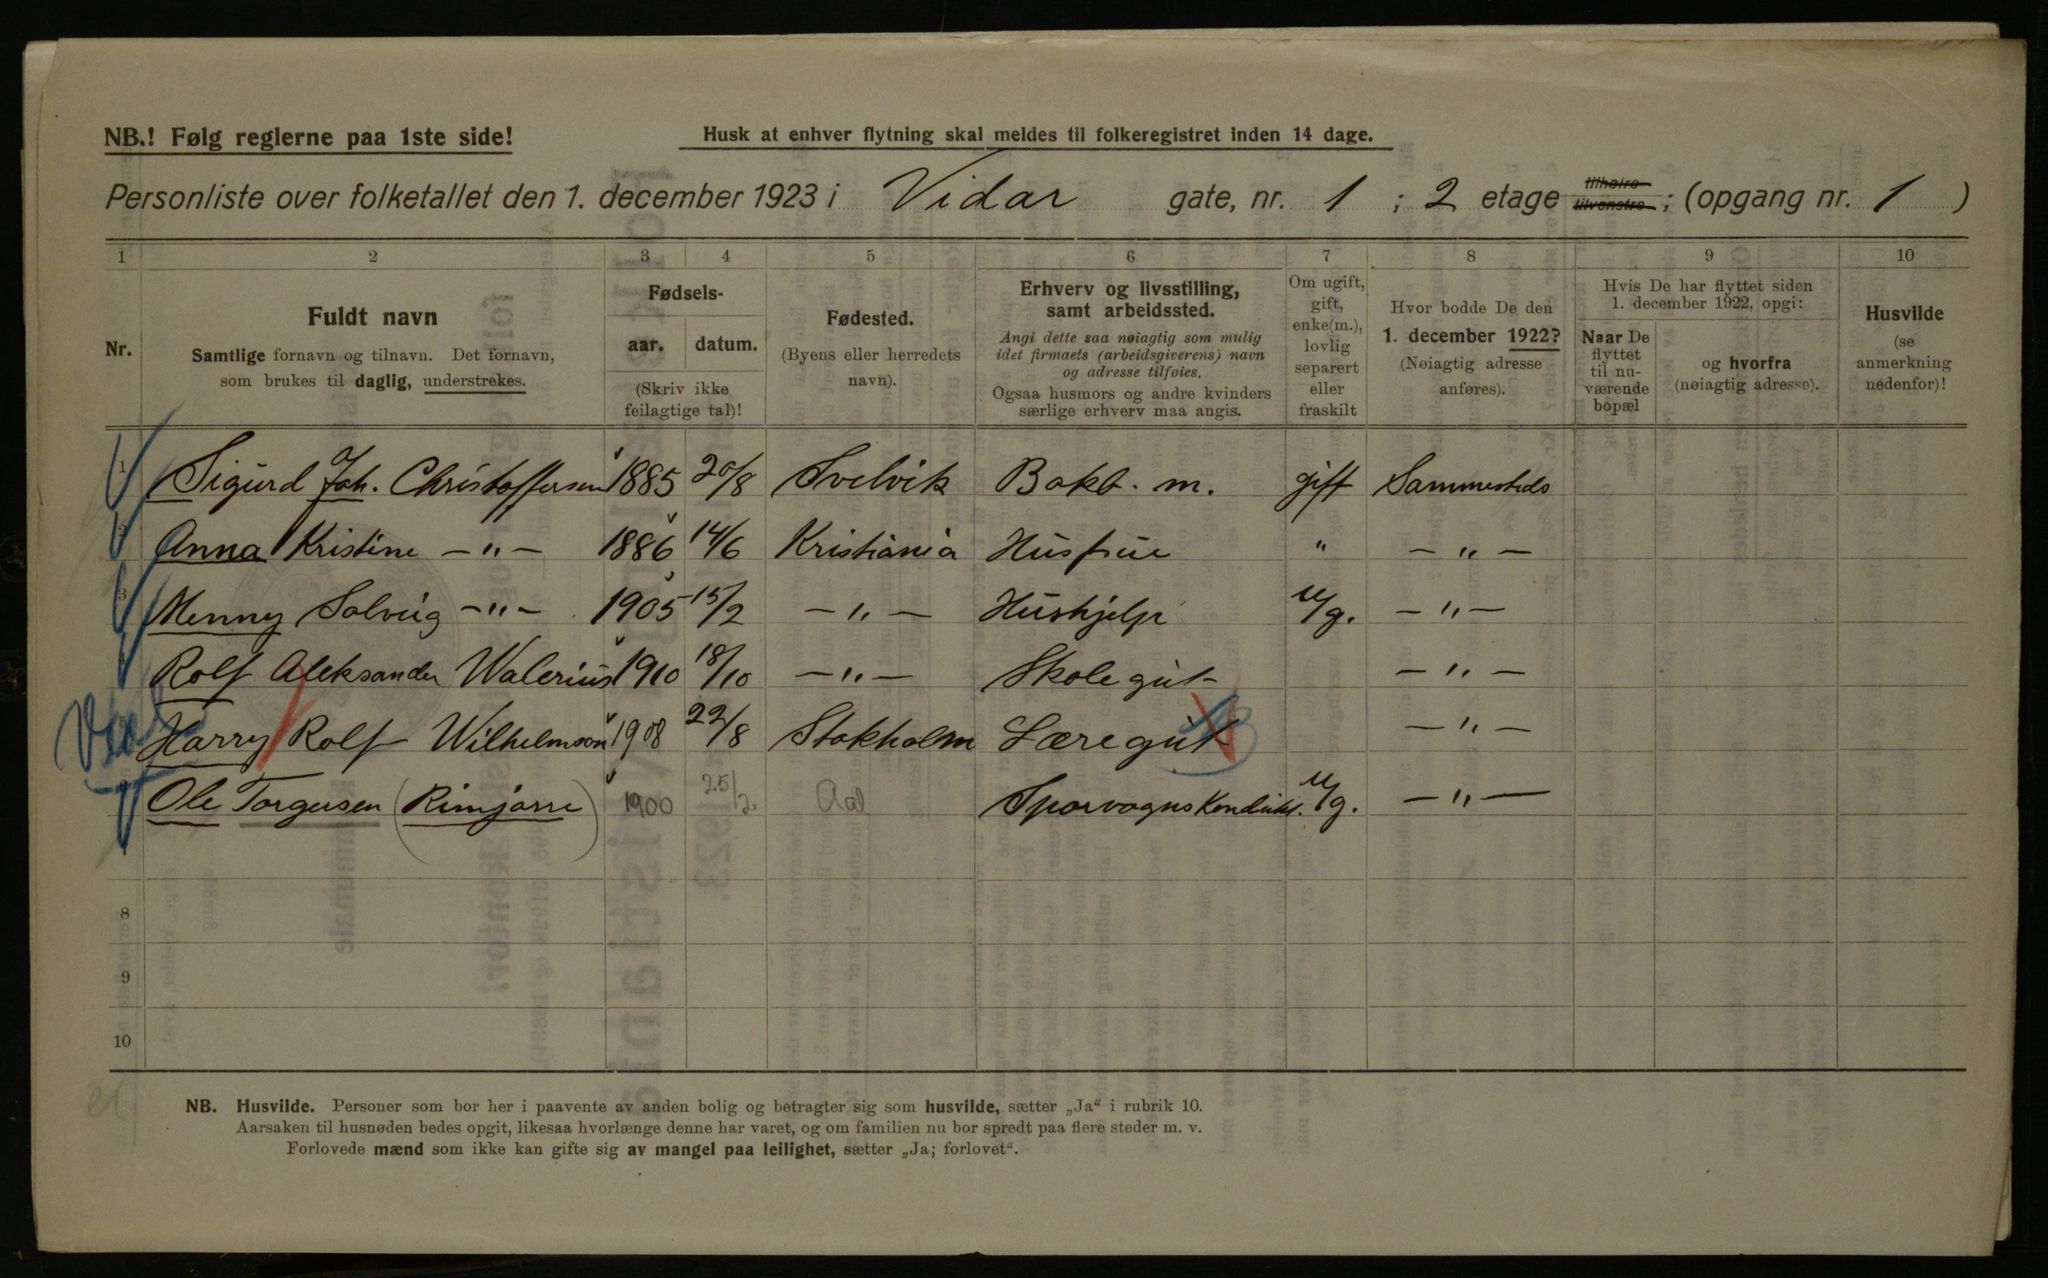 NB.! Følg reglerne paa 1ste side!
Husk at enhver flytning skal meldes til folkeregistret inden 14 dage.
Personliste over folketallet den 1. december 1923 i Vidar gate, nr. 1 ; 2 etage tilhøire tilvenstre ; (opgang nr. 1 )
1 2 3 4 5 6 7 8 9 10
Nr.
Fuldt navn
Samtlige fornavn og tilnavn. Det fornavn,
som brukes til daglig, understrekes.
Fødsels-
aar. datum.
(Skriv ikke
feilagtige tal)!
Fødested.
(Byens eller herredets
navn).
Erhverv og livsstilling,
samt arbeidssted.
Angi dette saa nøiagtig som mulig
idet firmaets (arbeidsgiverens) navn
og adresse tilføies.
Ogsaa husmors og andre kvinders
særlige erhverv maa angis.
Om ugift,
gift,
enke(m.),
lovlig
separert
eller
fraskilt
Hvor bodde De den
1. december 1922?
(Nøiagtig adresse
anføres).
Hvis De har flyttet siden
1. december 1922, opgi:
Naar De
flyttet
til nu-
værende
bopæl
og hvorfra
(nøiagtig adresse).
Husvilde
(se
anmerkning
nedenfor)!
1 Sigurd Joh. Christoffersen 1885 20/8 Svelvik Bokb. m. gift Sammesteds
2 Anna Kristine -"- 1886 14/6 Kristiania Husfrue " -"-
3 Menny Solveig -"- 1905 15/2 -"- Hushjelp u/g. -"-
4 Rolf Aleksander Walerius 1910 18/10 -"- Skolegut -"-
5 Harry Rolf Wilhelmson 1908 22/8 Stokholm Læregut -"-
6 Ole Torgersen (Rimjorre) 1900 25/2 Aal Sporvogns Kondukt. u/g. -"-
7
8
9
10
NB. Husvilde. Personer som bor her i paavente av anden bolig og betragter sig som husvilde, sætter „Ja“ i rubrik 10.
Aarsaken til husnøden bedes opgit, likesaa hvorlænge denne har varet, og om familien nu bor spredt paa flere steder m. v.
Forlovede mænd som ikke kan gifte sig av mangel paa leilighet, sætter „Ja; forlovet“.